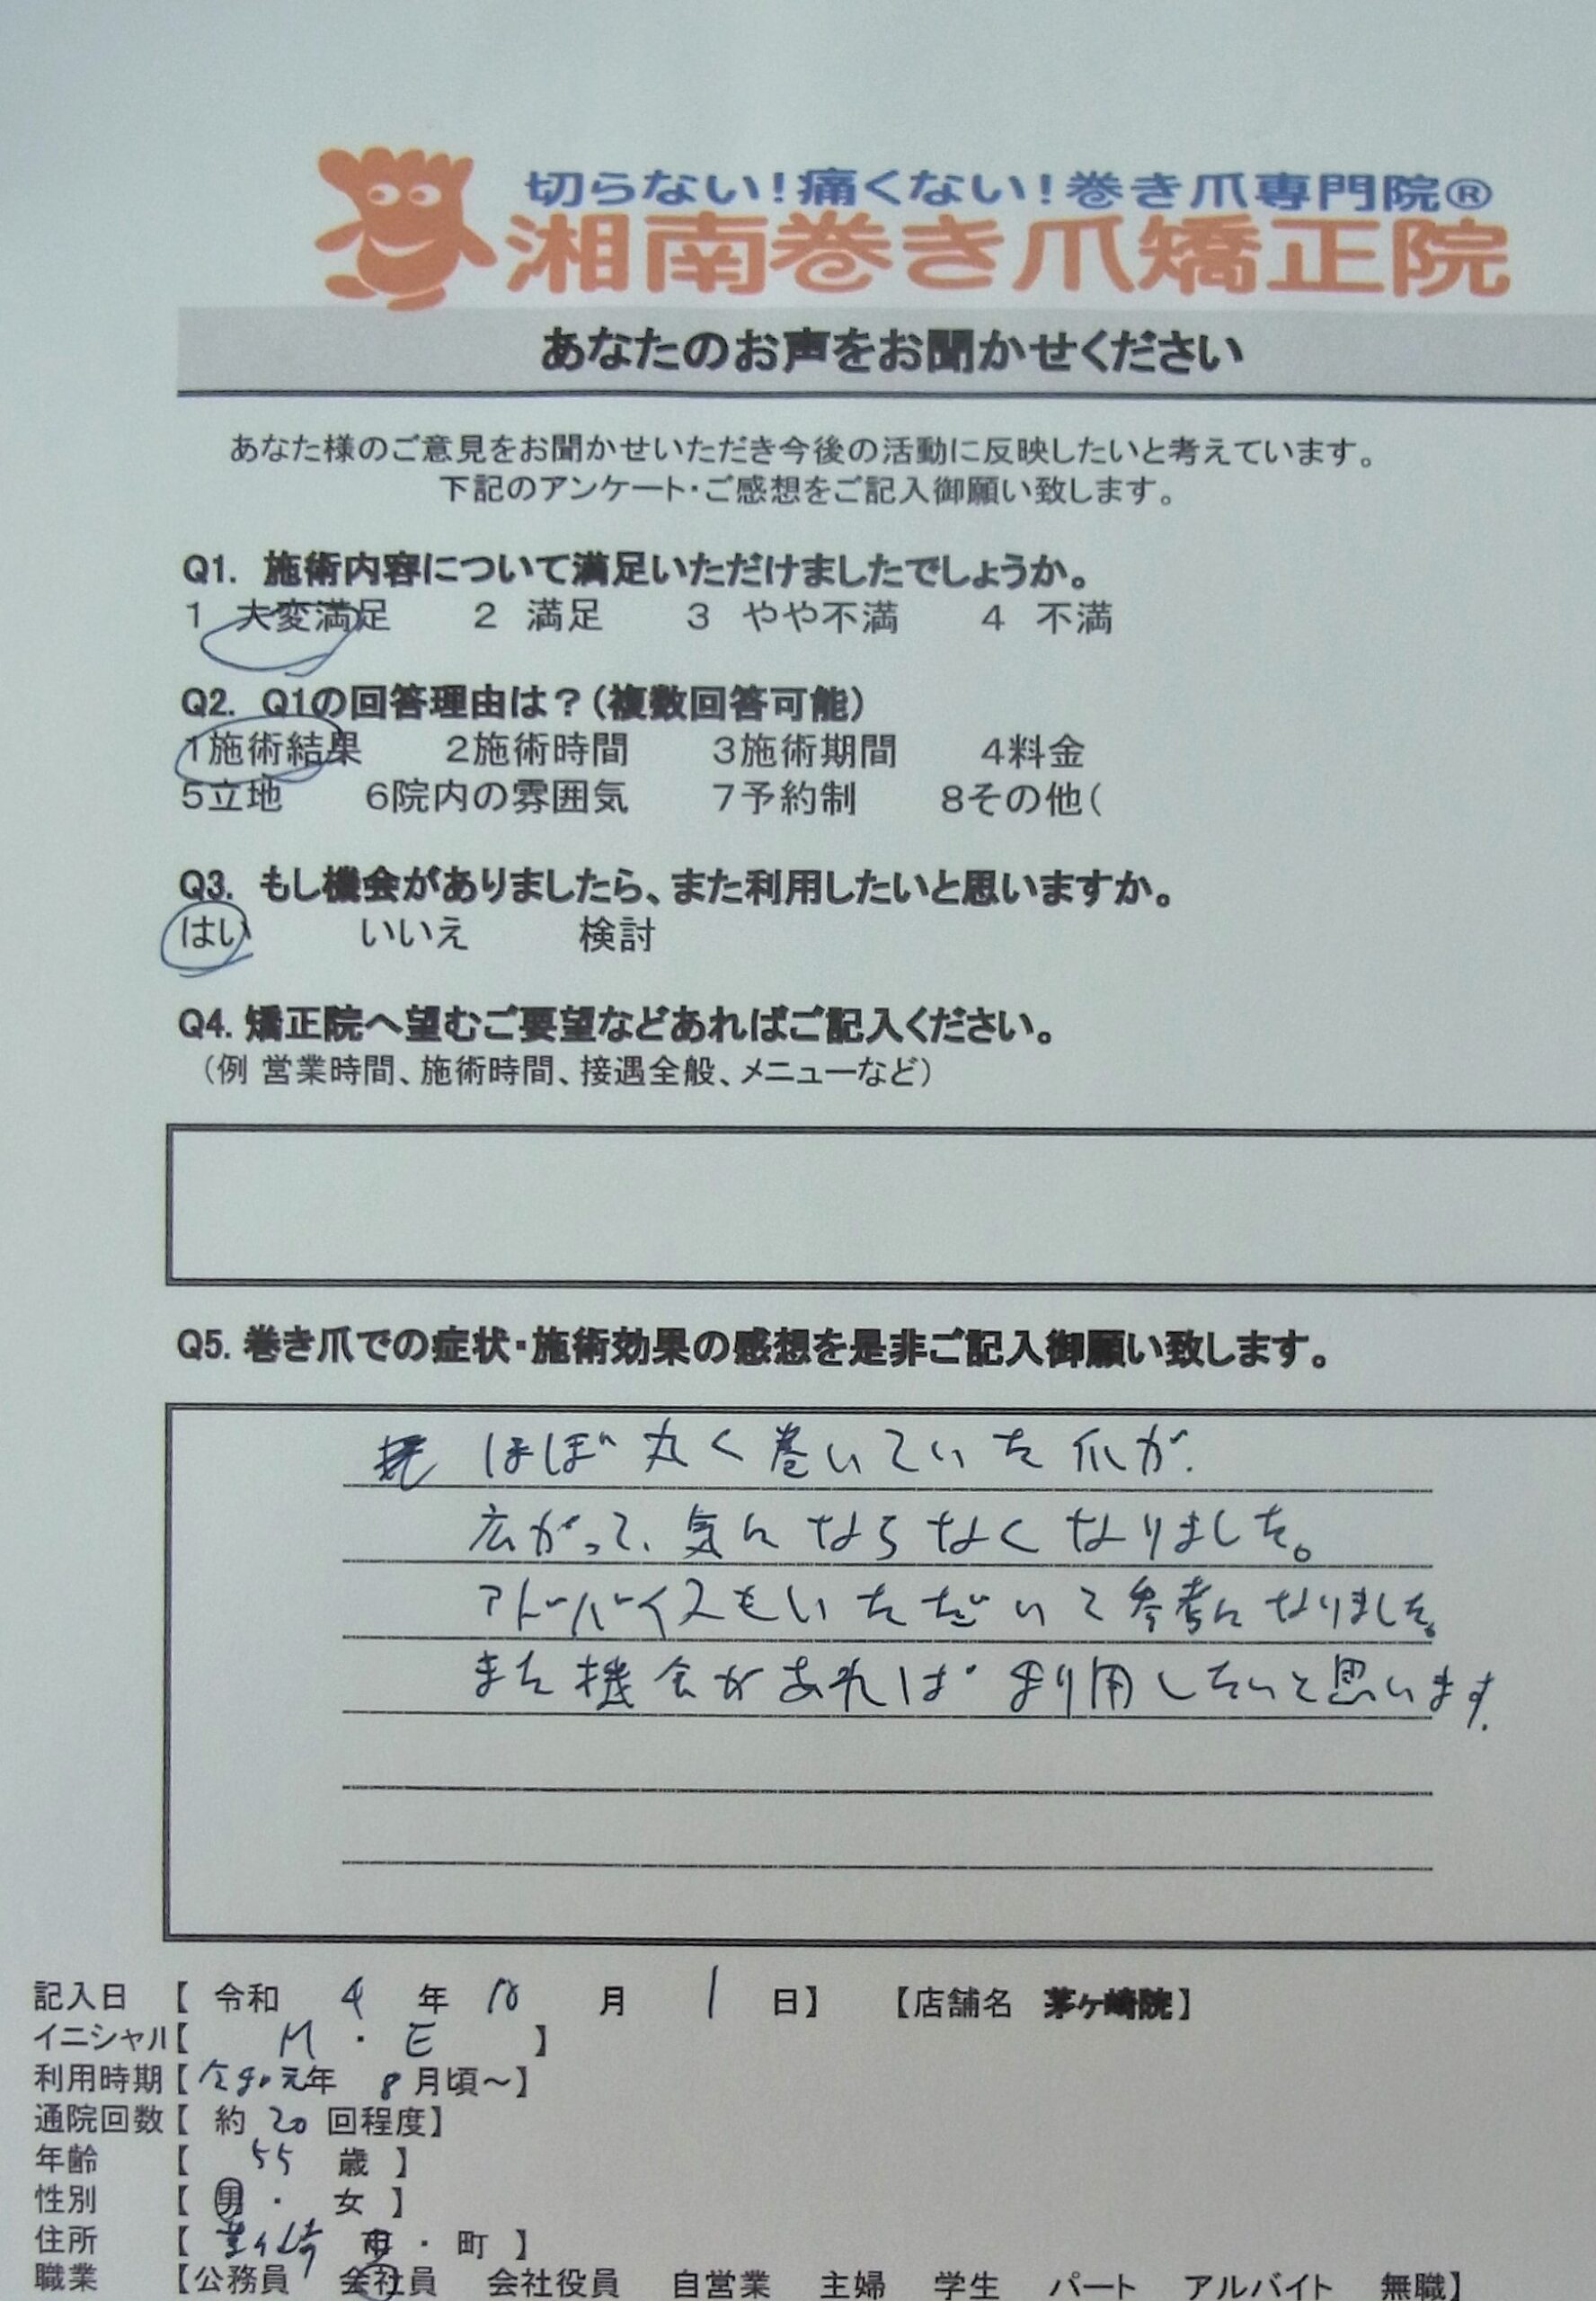 切らない!痛くない!巻き爪専門院®
湘南巻き爪矯正院
あなたのお声をお聞かせください
あなた様のご意見をお聞かせいただき今後の活動に反映したいと考えています。
下記のアンケート・ご感想をご記入御願い致します。
Q1. 施術内容について満足いただけましたでしょうか。
1 大変満足 2 満足 3 やや不満 4 不満
Q2. Q1の回答理由は?(複数回答可能)
1施術結果 2施術時間 3施術期間 4料金
5立地 6院内の雰囲気 7予約制 8その他(
Q3. もし機会がありましたら、また利用したいと思いますか。
はい いいえ 検討
Q4. 矯正院へ望むご要望などあればご記入ください。
(例 営業時間、施術時間、接遇全般、メニューなど)
Q5. 巻き爪での症状・施術効果の感想を是非ご記入御願い致します。
ほぼ丸く巻いていた爪が
広がって、気にならなくなりました。
アドバイスもいただいて参考になりました。
また機会があれば利用したいと思います。
記入日 【 令和 4 年 月 1 日】 【店舗名 茅ヶ崎院】
イニシャル【 M ・ E 】
利用時期【令和元年 8月頃~】
通院回数【 約 20 回程度】
年齢 【 55 歳 】
性別 【 男 ・ 女 】
住所 【 茅ヶ崎 市 ・ 町 】
職業 【公務員 会社員 会社役員 自営業 主婦 学生 パート アルバイト 無職】